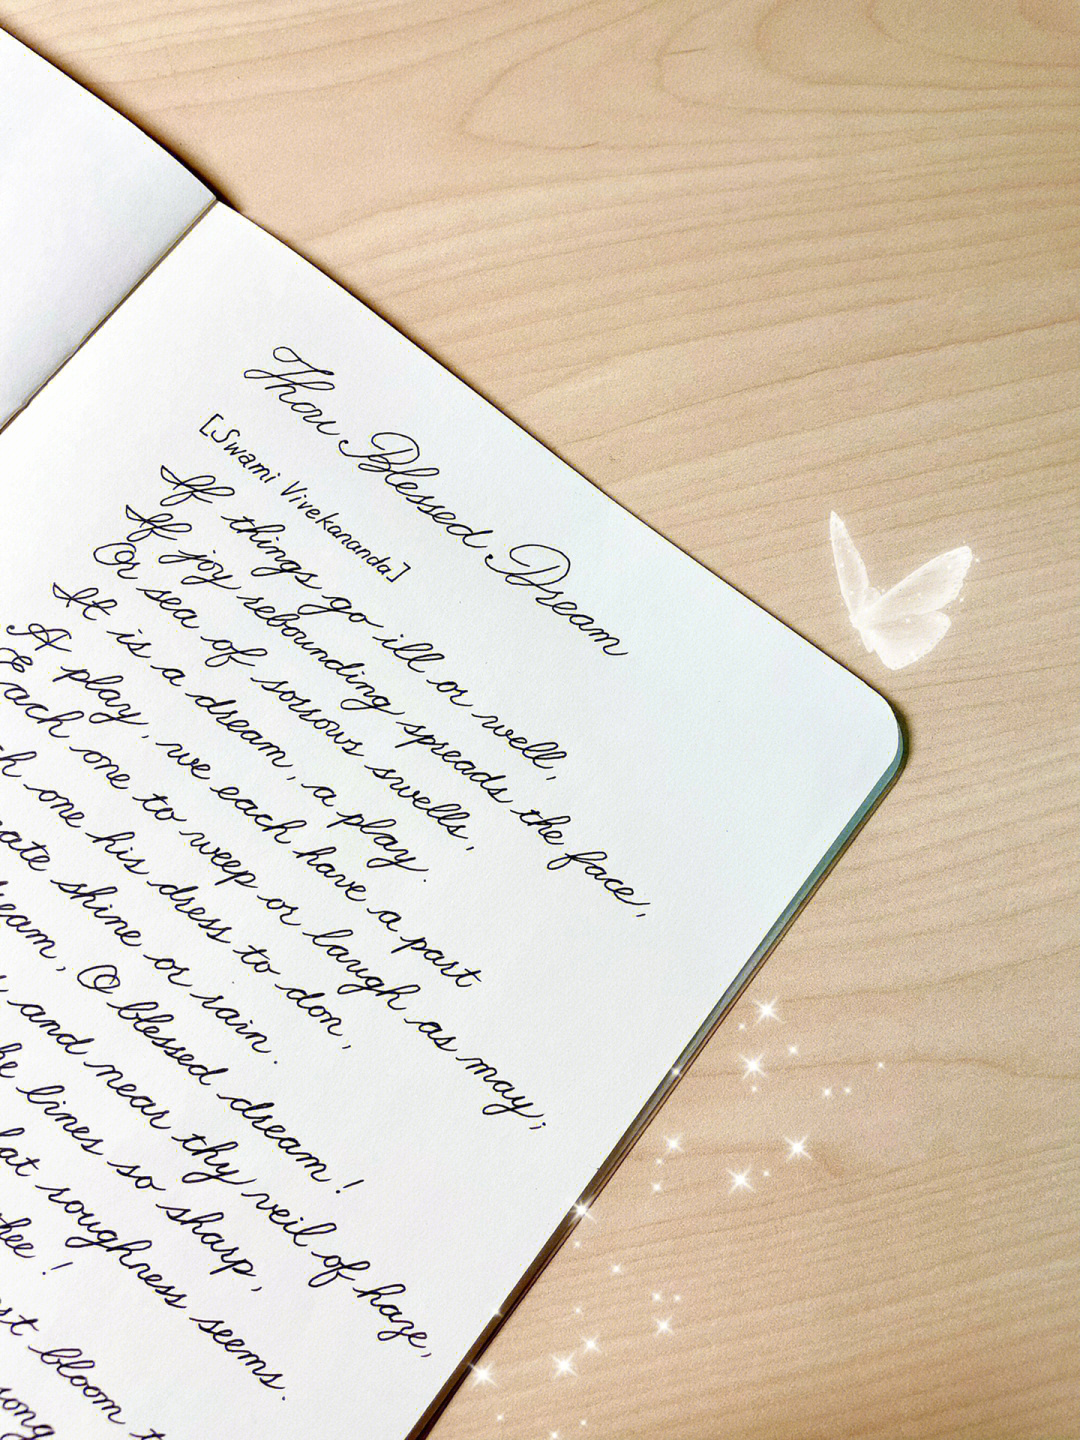 Thou Blessed Dream
[Swami Vivekananda]
If things go ill or well,
If joy rebounding spreads the face,
Or sea of sorrows swells,
It is a dream, a play.
A play, we each have a part
Each one to weep or laugh as may;
one his dress to don,
shine or rain.
O blessed dream!
and near thy veil of haze,
lines so sharp,
roughness seems.
!
bloom
song